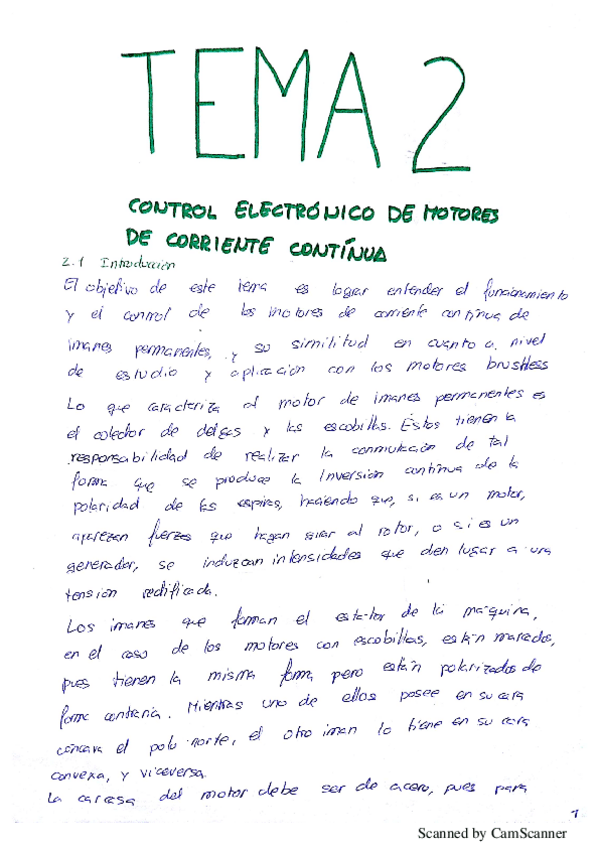 TEMA 2
CONTROL ELECTRÓNICO DE MOTORES
DE CORRIENTE CONTÍNUA
2.1 Introducción
El objetivo de este tema es lograr entender el funcionamiento
y el control de los motores de corriente contínua de
imanes permanentes, y su similitud en cuanto a nivel
de estudio y aplicación con los motores brushless
Lo que caracteriza al motor de imanes permanentes es
el colector de delgas y las escobillas. Estos tienen la
responsabilidad de realizar la conmutación de tal
forma que se produce la inversión contínua de la
polaridad de las espiras, haciendo que, si es un motor,
aparezcan fuerzas que hagan girar al rotor, o si es un
generador, se induzcan intensidades que den lugar a una
tensión rectificada.
Los imanes que forman el estator de la máquina,
en el caso de los motores con escobillas, están marcados,
pues tienen la misma forma pero están polarizados de
forma contraria. Mientras uno de ellos posee en su cara
cóncava el polo norte, el otro iman lo tiene en su cara
convexa, y viceversa.
La carcasa del motor debe ser de acero, pues para
1
Scanned by CamScanner